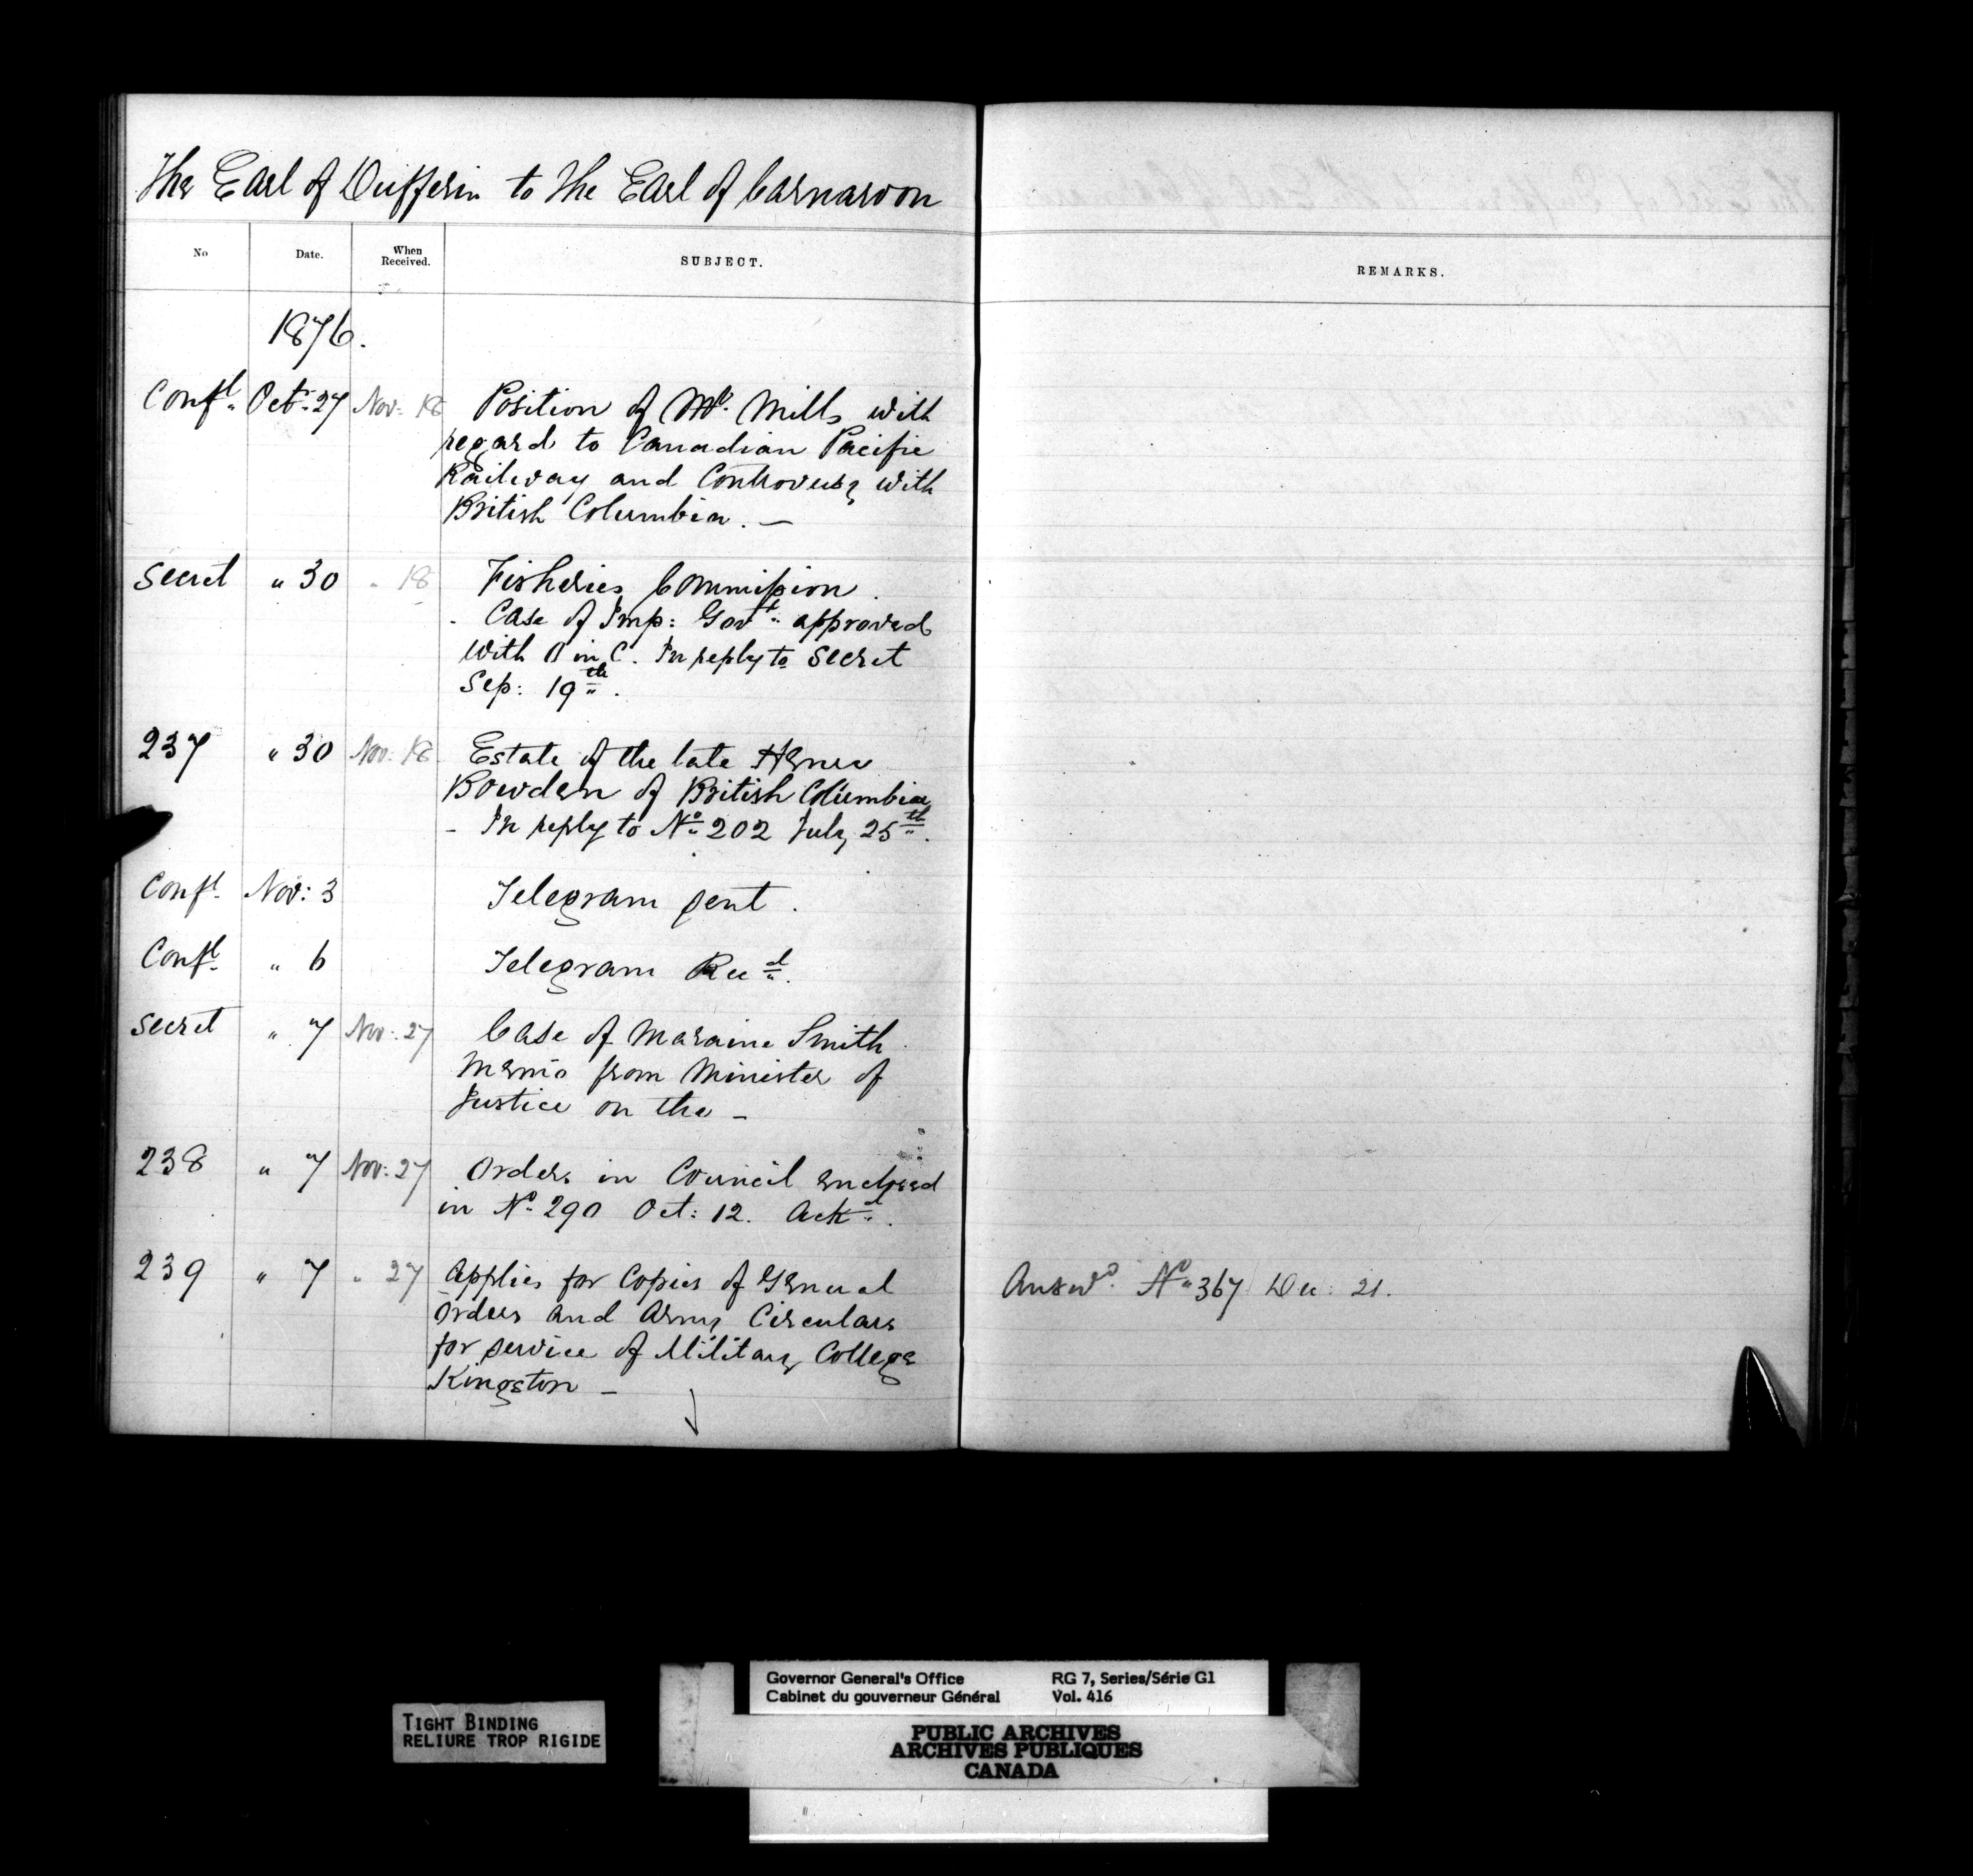 The Earl of Dufferin to the Earl of Carnarvon
No Date. When Received. SUBJECT. REMARKS.
1876.
Confl. Oct: 27 Nov: 18 Position of Mr. Mills with
regard to Canadian Pacific
Railway and Controversy with
British Columbia. —
Secret " 30 " 18 Fisheries Commission.
- Case of Imp: Govt. approved
with O in C. In reply to Secret
Sep: 19th.
237 " 30 Nov: 18 Estate of the late
Bowden of British Columbia
- In reply to No 202 July 25th.
Confl. Nov: 3 Telegram sent.
Confl. " 6 Telegram Recd.
Secret " 7 Nov: 27 Case of Maraine Smith
Memo from Minister of
Justice on the —
238 " 7 Nov: 27 Orders in Council enclosed
in No 290 Oct: 12. Ackd.
239 " 7 " 27 Applies for Copies of General
Orders and Army Circulars
for service of Military College
Kingston —
Answd. No 367 Dec: 21.
TIGHT BINDING
RELIURE TROP RIGIDE
Governor General's Office RG 7, Series/Série G1
Cabinet du gouverneur Général Vol. 416
PUBLIC ARCHIVES
ARCHIVES PUBLIQUES
CANADA